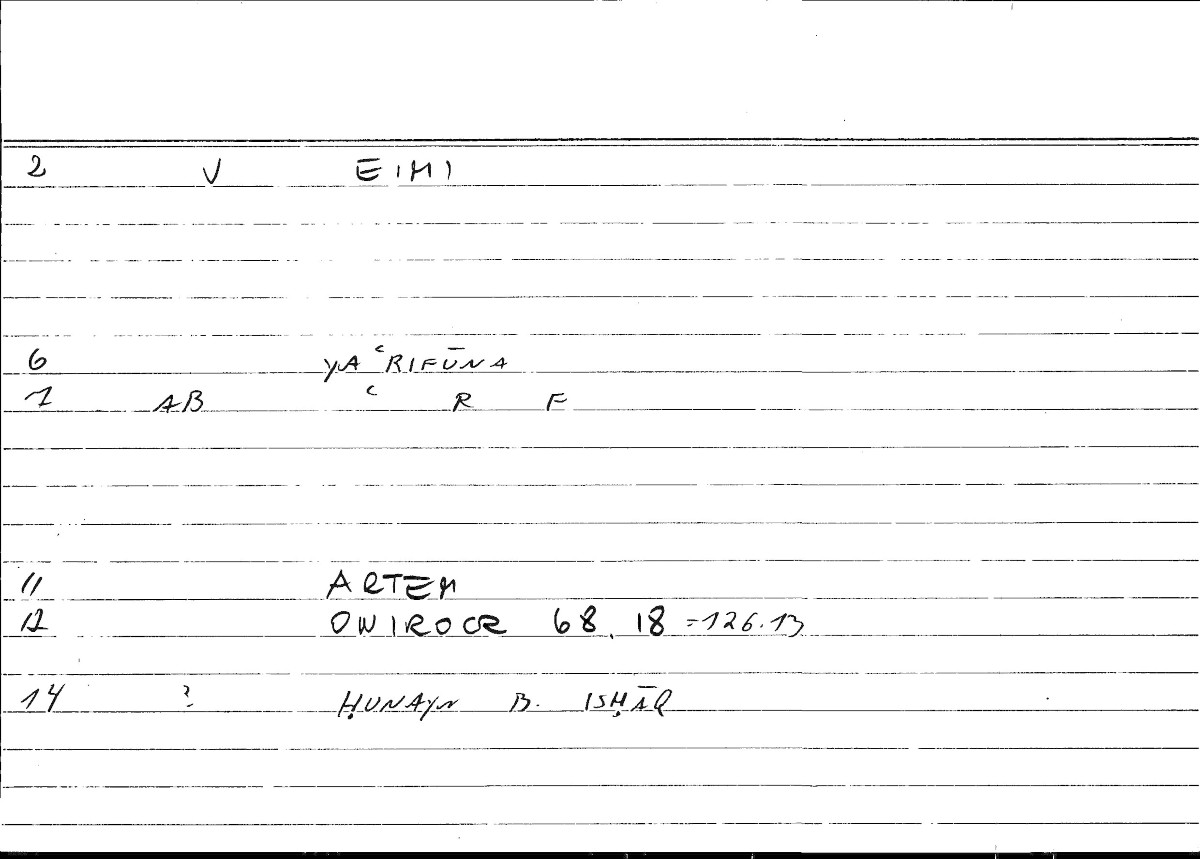 2 V EIMI
6 YAʿRIFŪNA
7 AB ʿ R F
11 ARTEM
12 ONIROCR 68.18 =126.13
14 ? ḤUNAYN B. ISḤĀQ